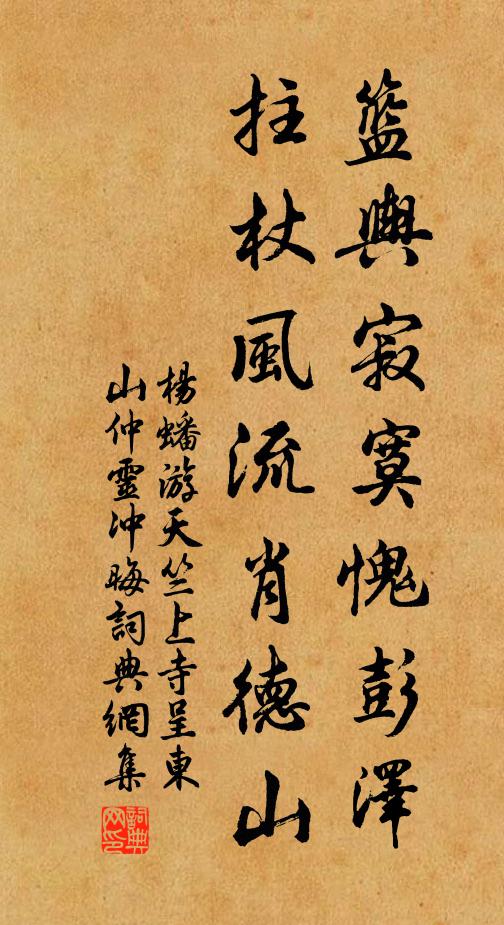 籃輿寂寞愧彭澤
拄杖風流肖德山
楊蟠游天竺上寺呈東
山仲靈冲晦詞典網集
詞典
网印